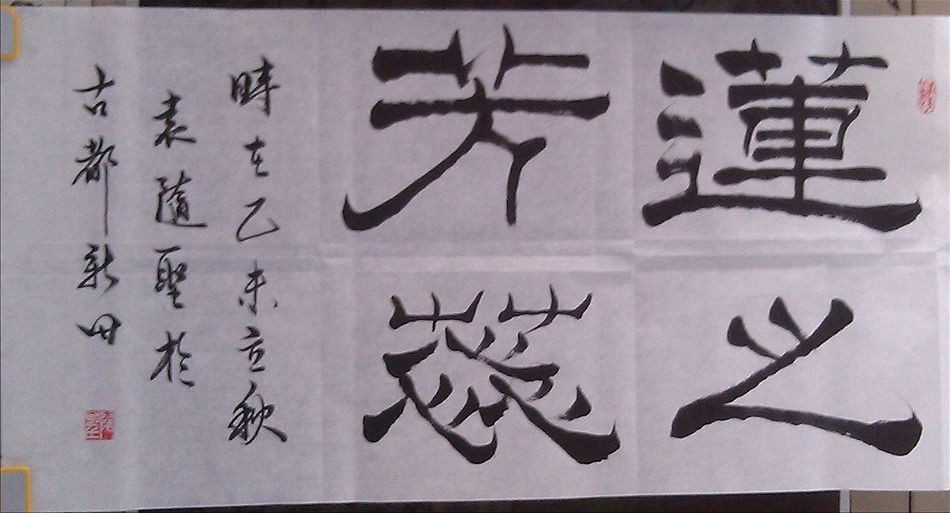 蓮之
芳蕊
時在乙未立秋
袁隨聖於
古都新田